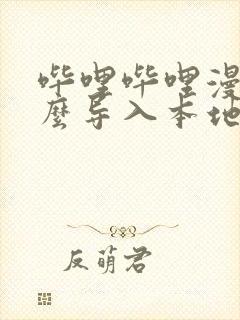 哔哩哔哩漫
麼导入本地
反萌君